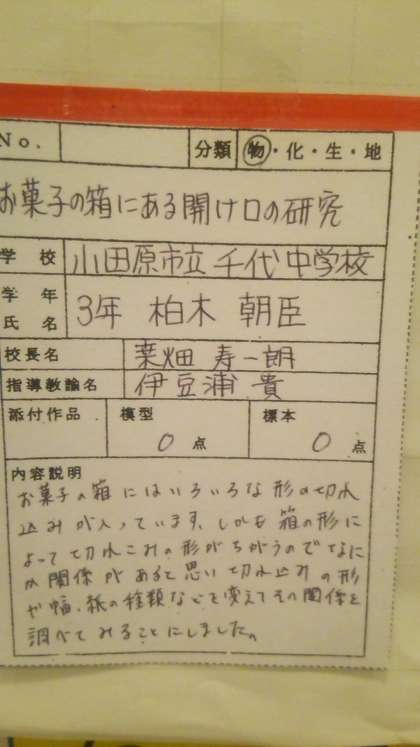 No. 分類 物・化・生・地
お菓子の箱にある開け口の研究
学校 小田原市立 千代中学校
学年 氏名 3年 柏木 朝臣
校長名 葉畑 寿一朗
指導教諭名 伊豆浦 貴
添付作品 模型 0点 標本 0点
内容説明
お菓子の箱にはいろいろな形の切れ
込みが入っています、しかも箱の形に
よって切れこみの形がちがうのでなに
か関係があると思い切れ込みの形
や幅、紙の種類などを変えてその関係を
調べてみることにしました。